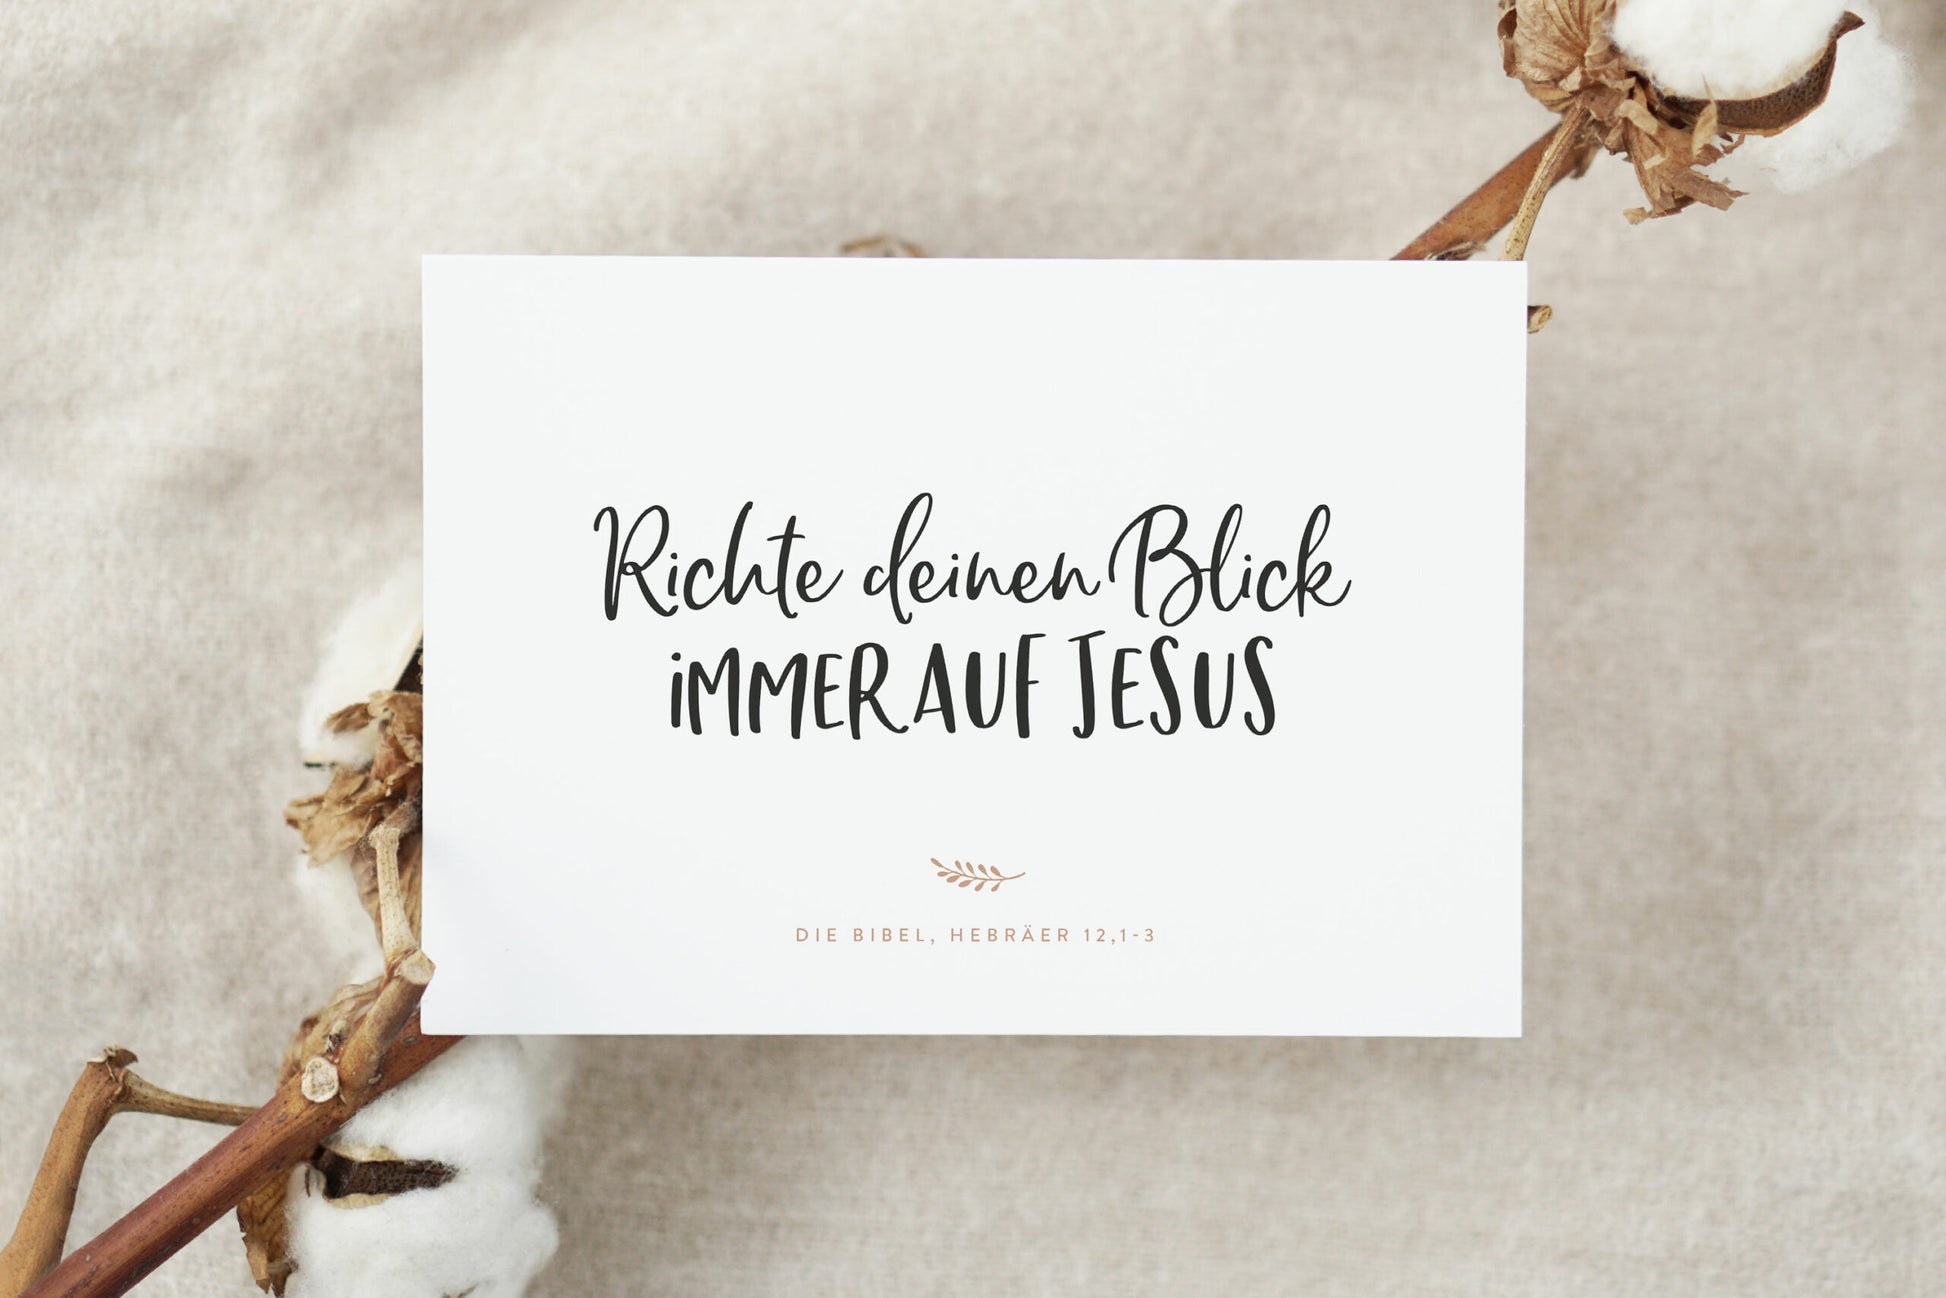 Richte deinen Blick
iMMER AUF JESUS
DIE BIBEL, HEBRÄER 12,1-3